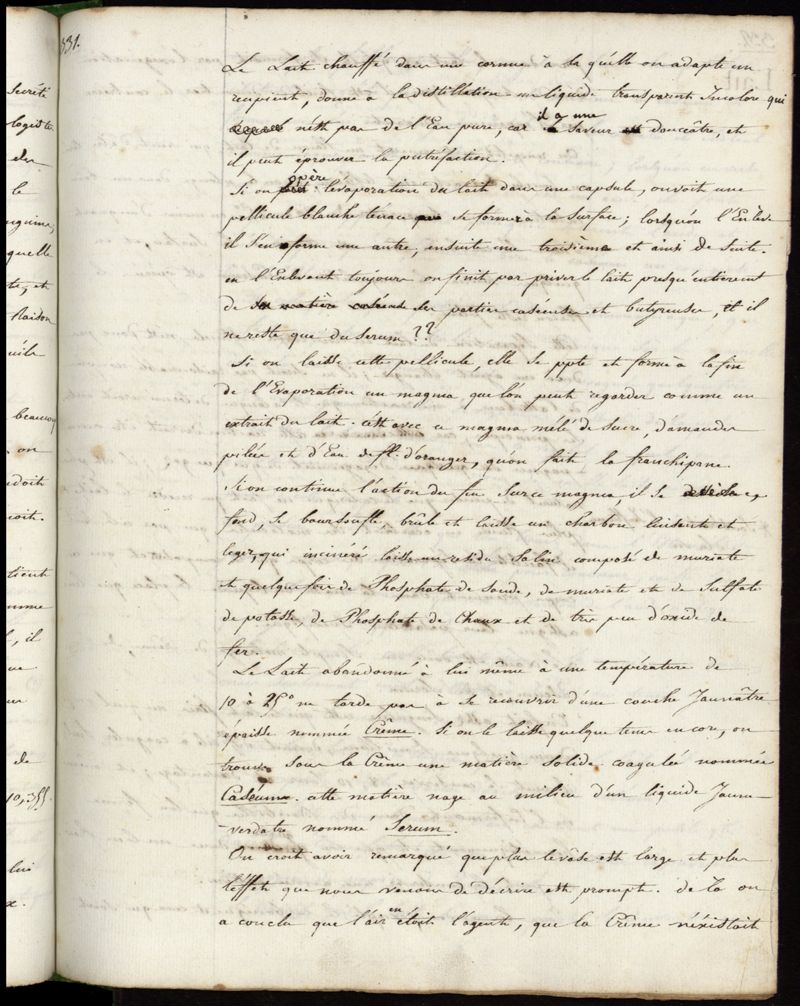 331.
Le Lait chauffé dans une cornue à la quelle on adapte un
recipient, donne a la distillation un liquide transparent Incolore qui
n'est pas de l'Eau pure, car il a une Saveur douceâtre, et
il peut éprouver la putréfaction.
Si on opère l'évaporation du lait dans une capsule, on voit une
pellicule blanche ténace se former à la Surface; lorsqu'on l'Enlève
il s'en forme une autre, ensuite une troisieme et ainsi de Suite.
en l'Enlevant toujours on finit par priver le lait presqu'entièrement
de ses partie caséeuse et butyreuse, et il
ne reste que du serum ??
Si on laisse cette pellicule, elle se ppte et forme à la fin
de l'Evaporation un magma que l'on peut regarder comme un
extrait du lait. c'est avec ce magma mêlé de Sucre, d'amandes
pilées et d'Eau de fl. d'oranger, qu'on fait la franchipane.
Si on continue l'action du feu Sur ce magma, il Se
fond, se boursouffle, brûle et laisse un charbon luisant et
leger, qui incinéré laisse un résidu Salin composé de muriate
et quelquefois de Phosphate de Soude, de muriate et de Sulfate
de potasse, de Phosphate de Chaux et de très peu d'oxide de
fer.
Le Lait abandonné à lui même à une température de
10 à 25° ne tarde pas à se recouvrir d'une couche Jaunâtre
épaisse nommée Crême. Si on le laisse quelque tems encore, on
trouve Sous la Crême une matière Solide coagulée nommée
Caséum. cette matière nage au milieu d'un liquide Jaune
verdatre nommé Serum.
On croit avoir remarqué que plus le vâse est large et plus
l'éffet que nous venons de décrire est prompt. de là on
a conclu que l'air en étoit l'agent, que la Crême n'éxistait
Secrété
le
quelle
te, et
Raison
beaucoup
on
doit
soit.
tient
il
de
10,355.
lui